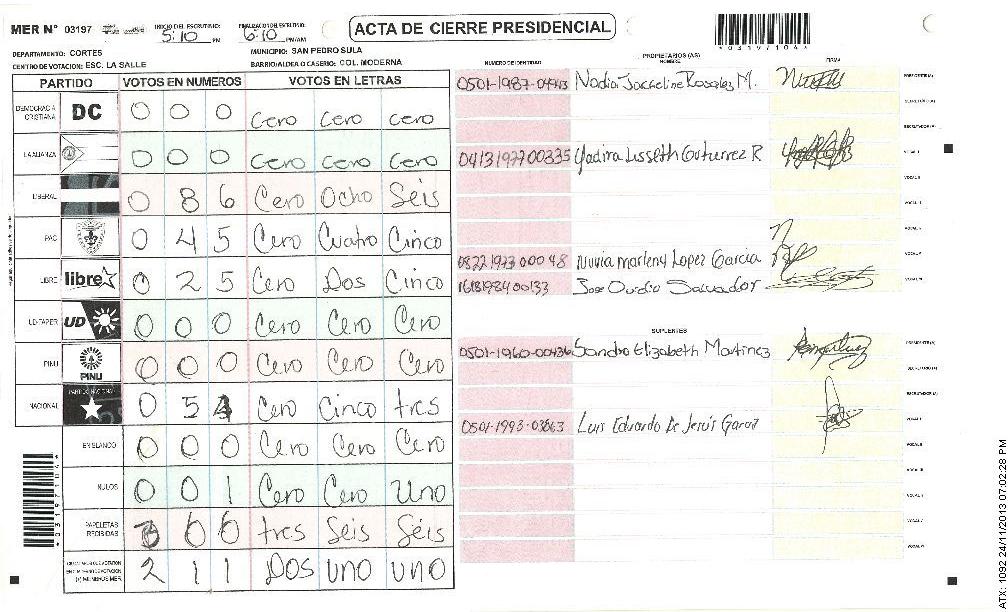 MER N° 03197 INICIO DEL ESCRUTINIO: 5:10 PM FINALIZACION DEL ESCRUTINIO: 6:10 PM/AM
ACTA DE CIERRE PRESIDENCIAL
*03197104*
DEPARTAMENTO: CORTES MUNICIPIO: SAN PEDRO SULA
CENTRO DE VOTACION: ESC. LA SALLE BARRIO/ALDEA O CASERIO: COL. MODERNA
PARTIDO VOTOS EN NUMEROS VOTOS EN LETRAS
DEMOCRACIA CRISTIANA DC 0 0 0 Cero Cero Cero
LA ALIANZA 0 0 0 Cero Cero Cero
LIBERAL 0 8 6 Cero Ocho Seis
PAC 0 4 5 Cero Cuatro Cinco
LIBRE libre 0 2 5 Cero Dos Cinco
UD-FAPER UD 0 0 0 Cero Cero Cero
PINU PINU 0 0 0 Cero Cero Cero
NACIONAL PARTIDO NACIONAL 0 5 Cero Cinco tres
EN BLANCO 0 0 0 Cero Cero Cero
NULOS 0 0 1 Cero Cero Uno
PAPELETAS RECIBIDAS 3 6 6 tres Seis Séis
2 1 1 Dos uno uno
NUMERO DE IDENTIDAD PROPIETARIOS (AS) NOMBRE FIRMA
0501-1987- Nadia Jackeline Rosales M. PRESIDENTE(A)
SECRETARIO(A)
ESCRUTADOR(A)
0413197700335 Yadira Lisseth Gutierrez R VOCAL I
VOCAL II
VOCAL III
VOCAL IV
0822197300048 Nuvia marleny Lopez Garcia VOCAL V
1618198400133 Jose Ovidio Salvador VOCAL VI
SUPLENTES
0501-1960-00436 Sandra Elizabeth Martinez PRESIDENTE(A)
SECRETARIO(A)
ESCRUTADOR(A)
0501-1993-03863 Luis Eduardo De Jesús Garcia VOCAL I
VOCAL II
VOCAL III
VOCAL IV
VOCAL V
VOCAL VI
*03197104*
ATX: 1092 24/11/2013 07:02:28 PM